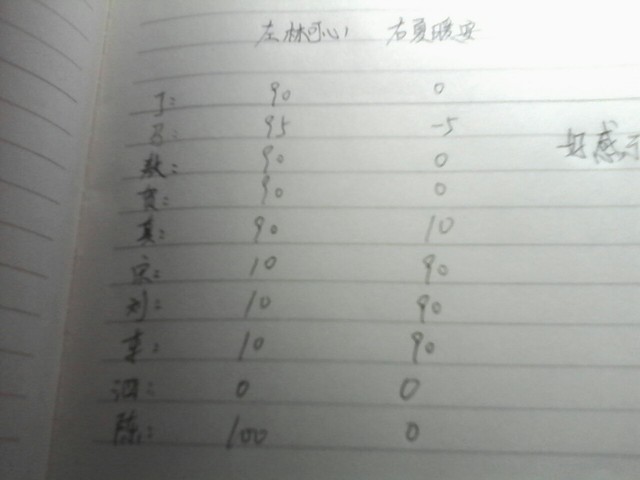 左林可心 右夏暖安
丁: 90 0
吕: 95 -5
敖: 90 0
贾: 90 0
真: 90 10
宗: 10 90
刘: 10 90
李: 10 90
泪: 0 0
陈: 100 0
好感